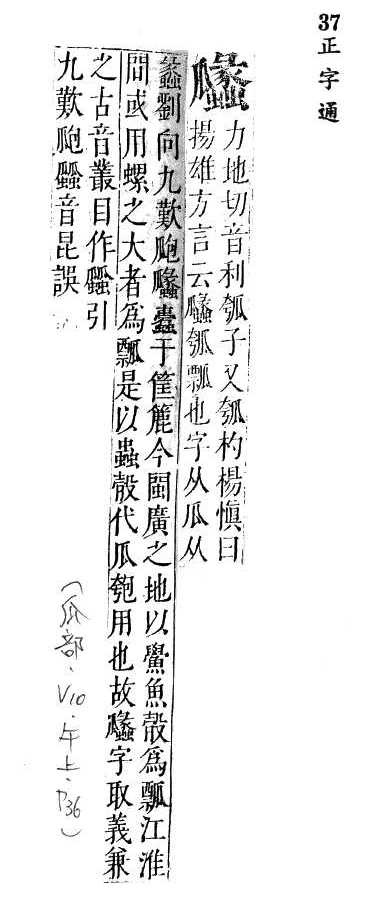 37正字通
㼖
力地切音利瓠子又瓠杓楊慎曰
揚雄方言云㼖瓠瓢也字从瓜从
蠡劉向九歎瓟㼖蠹于筐簏今閩廣之地以鱟魚殼爲瓢江淮
間或用螺之大者爲瓢是以蟲殼代瓜匏用也故㼖字取義兼
之古音叢目作㼖引
九歎瓟㼖音昆誤
（瓜部．V10．午上．P36）